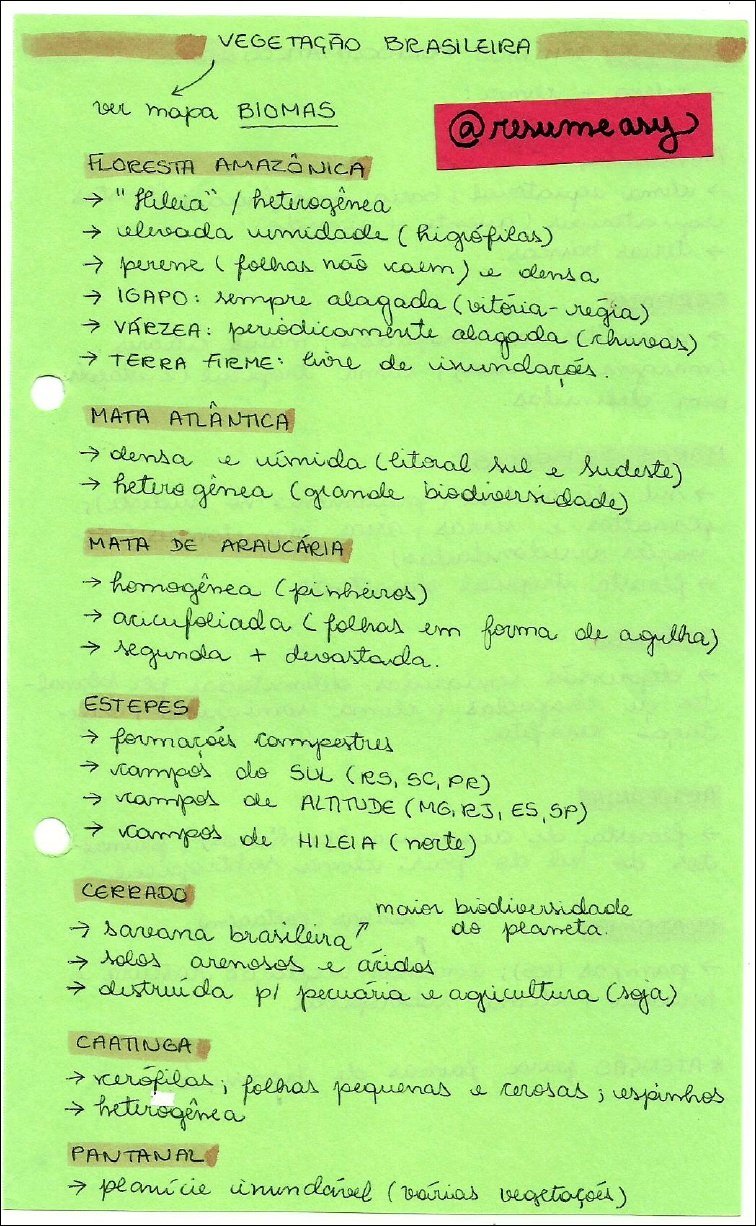 VEGETAÇÃO BRASILEIRA
ver mapa BIOMAS
@resumeasy
FLORESTA AMAZÔNICA
→ "Hileia" / heterogênea
→ elevada umidade (higrófilas)
→ perene (folhas não caem) e densa
→ IGAPO: sempre alagada (vitória-régia)
→ VÁRZEA: periódicamente alagada (chuvas)
→ TERRA FIRME: livre de inundações.
MATA ATLÂNTICA
→ densa e úmida (litoral sul e sudeste)
→ heterogênea (grande biodiversidade)
MATA DE ARAUCÁRIA
→ homogênea (pinheiros)
→ acicufoliada (folhas em forma de agulha)
→ segunda + devastada.
ESTEPES
→ formações campestres
→ campos do SUL (RS, SC, PR)
→ campos de ALTITUDE (MG, RJ, ES, SP)
→ campos de HILEIA (norte)
CERRADO
→ savana brasileira ↗ maior biodiversidade
do planeta.
→ solos arenosos e ácidos
→ destruída p/ pecuária e agricultura (soja)
CAATINGA
→ xerófilas; folhas pequenas e cerosas; espinhos
→ heterogênea
PANTANAL
→ planície inundável (várias vegetações)